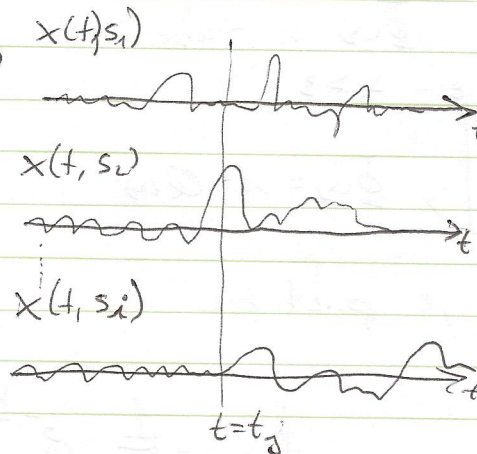 x(t, s₁)
x(t, s₂)
t
x(t, sᵢ)
t
t = tⱼ